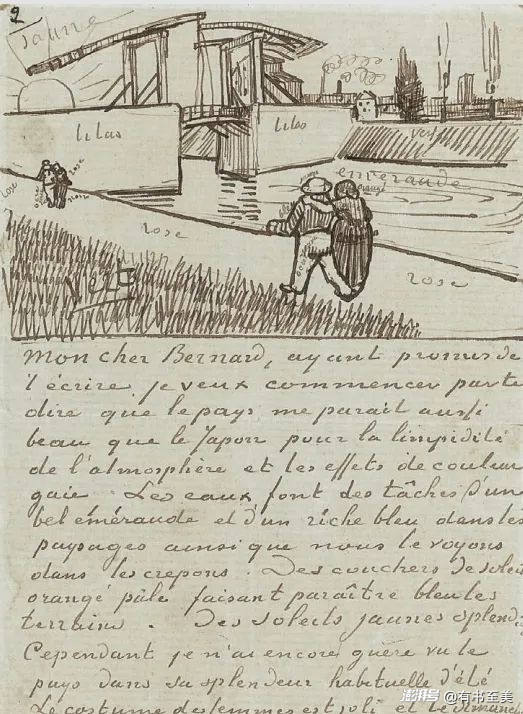 2
Jaune
lilas
lilas
vert
emeraude
rose
rose
rose
noir
orange
rose
rose
vert
Mon cher Bernard, ayant promis de
t'écrire je veux commencer par te
dire que le pays me parait aussi
beau que le Japon pour la limpidité
de l'atmosphère et les effets de couleur
gaie. Les eaux font des tâches d'un
bel éméraude et d'un riche bleu dans les
paysages ainsi que nous le voyons
dans les crepons. Des couchers de soleil
orangé pâle faisant paraître bleu les
terrains. Des soleils jaunes splendi
Cependant je n'ai encore guère vu le
pays dans sa splendeur habituelle d'été
Le costume des femmes est joli et le dimanche
澎湃号 @有书至美